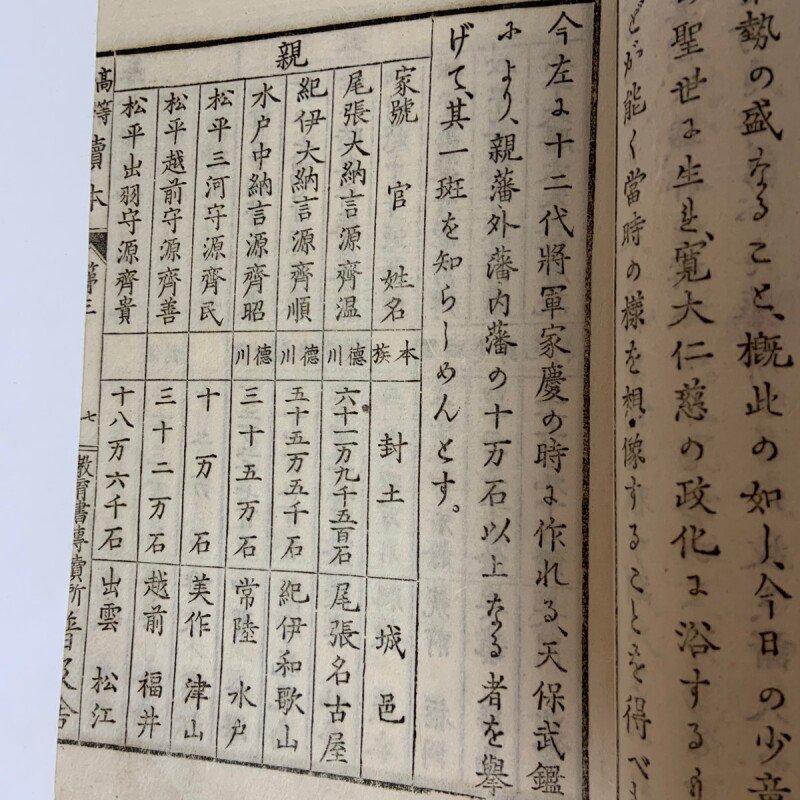 勢の盛なること、概此の如し、今日の少
聖世に生れ、寛大仁慈の政化に浴するも
どが能く當時の樣を想像することを得べ
今左に十二代將軍家慶の時に作れる、天保武鑑
により、親藩外藩内藩の十万石以上なる者を擧
げて、其一斑を知らしめんとす。
親
家號 官 姓名 本族 封土 城邑
尾張大納言源齊温 德川 六十一万九千五百石 尾張名古屋
紀伊大納言源齊順 德川 五十五万五千石 紀伊和歌山
水戸中納言源齊昭 德川 三十五万石 常陸 水戸
松平三河守源齊民 十万石 美作 津山
松平越前守源齊善 三十二万石 越前 福井
松平出羽守源齊貴 十八万六千石 出雲 松江
高等讀本 第三 七 教育書專賣所 普及舍